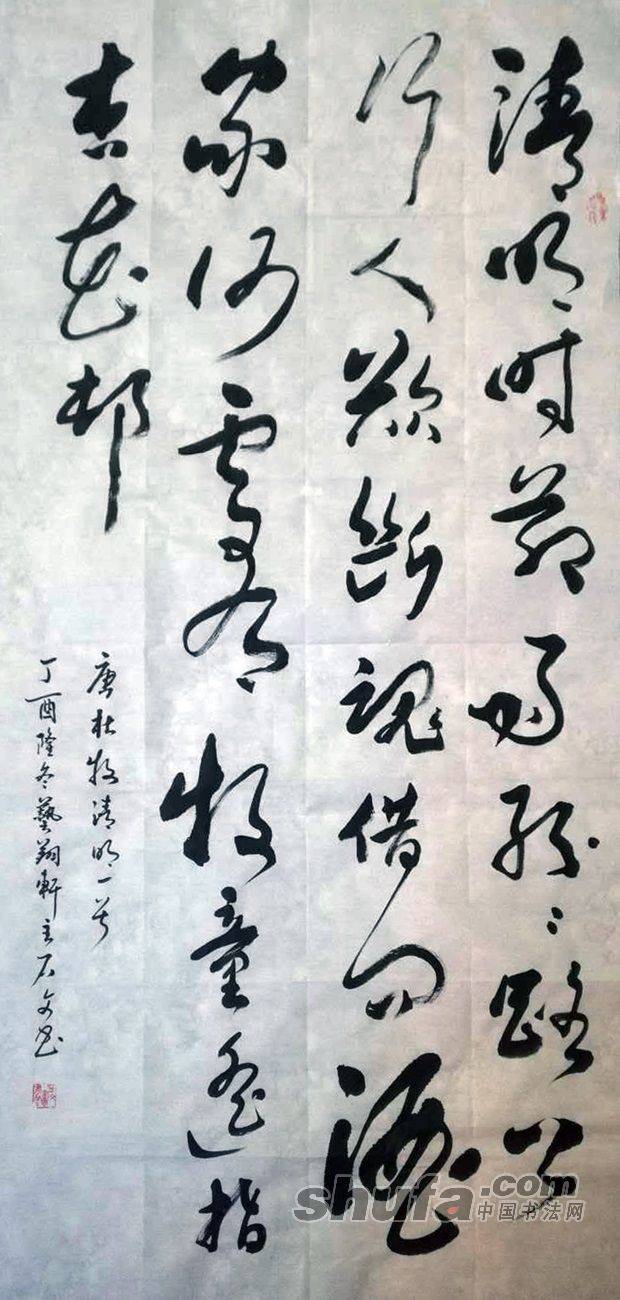 清明时节雨纷々路上
行人欲断魂借问酒
家何處有牧童遥指
杏花村
唐杜牧清明一首
丁酉隆冬藝翔軒主石文书
shufa.com
中国书法网